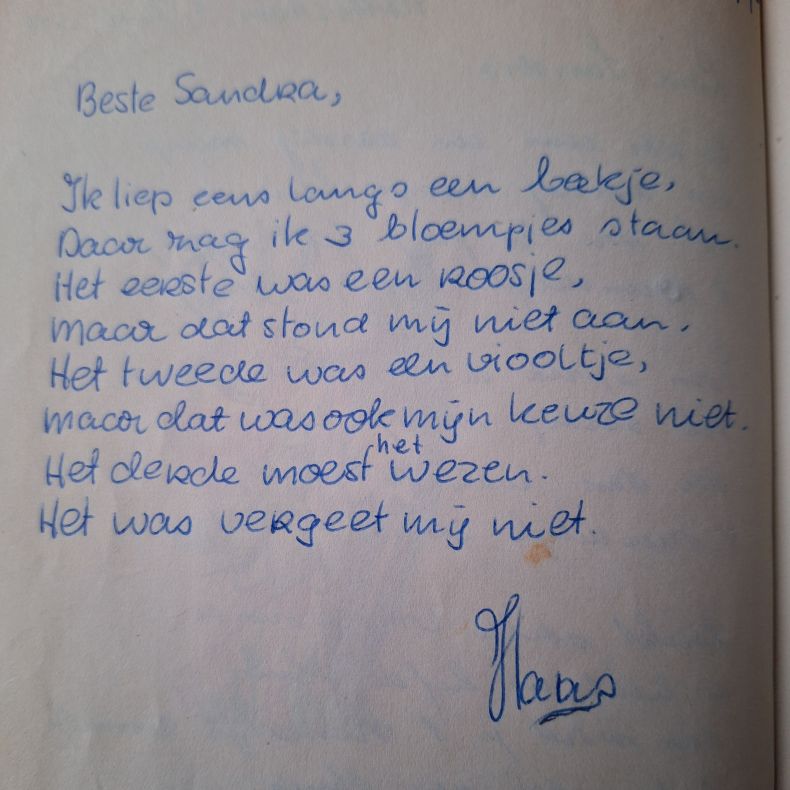 Beste Sandra,
Ik liep eens langs een beekje,
Daar zag ik 3 bloempjes staan.
Het eerste was een roosje,
maar dat stond mij niet aan.
Het tweede was een viooltje,
maar dat was ook mijn keuze niet.
Het derde moest het wezen.
Het was vergeet mij niet.